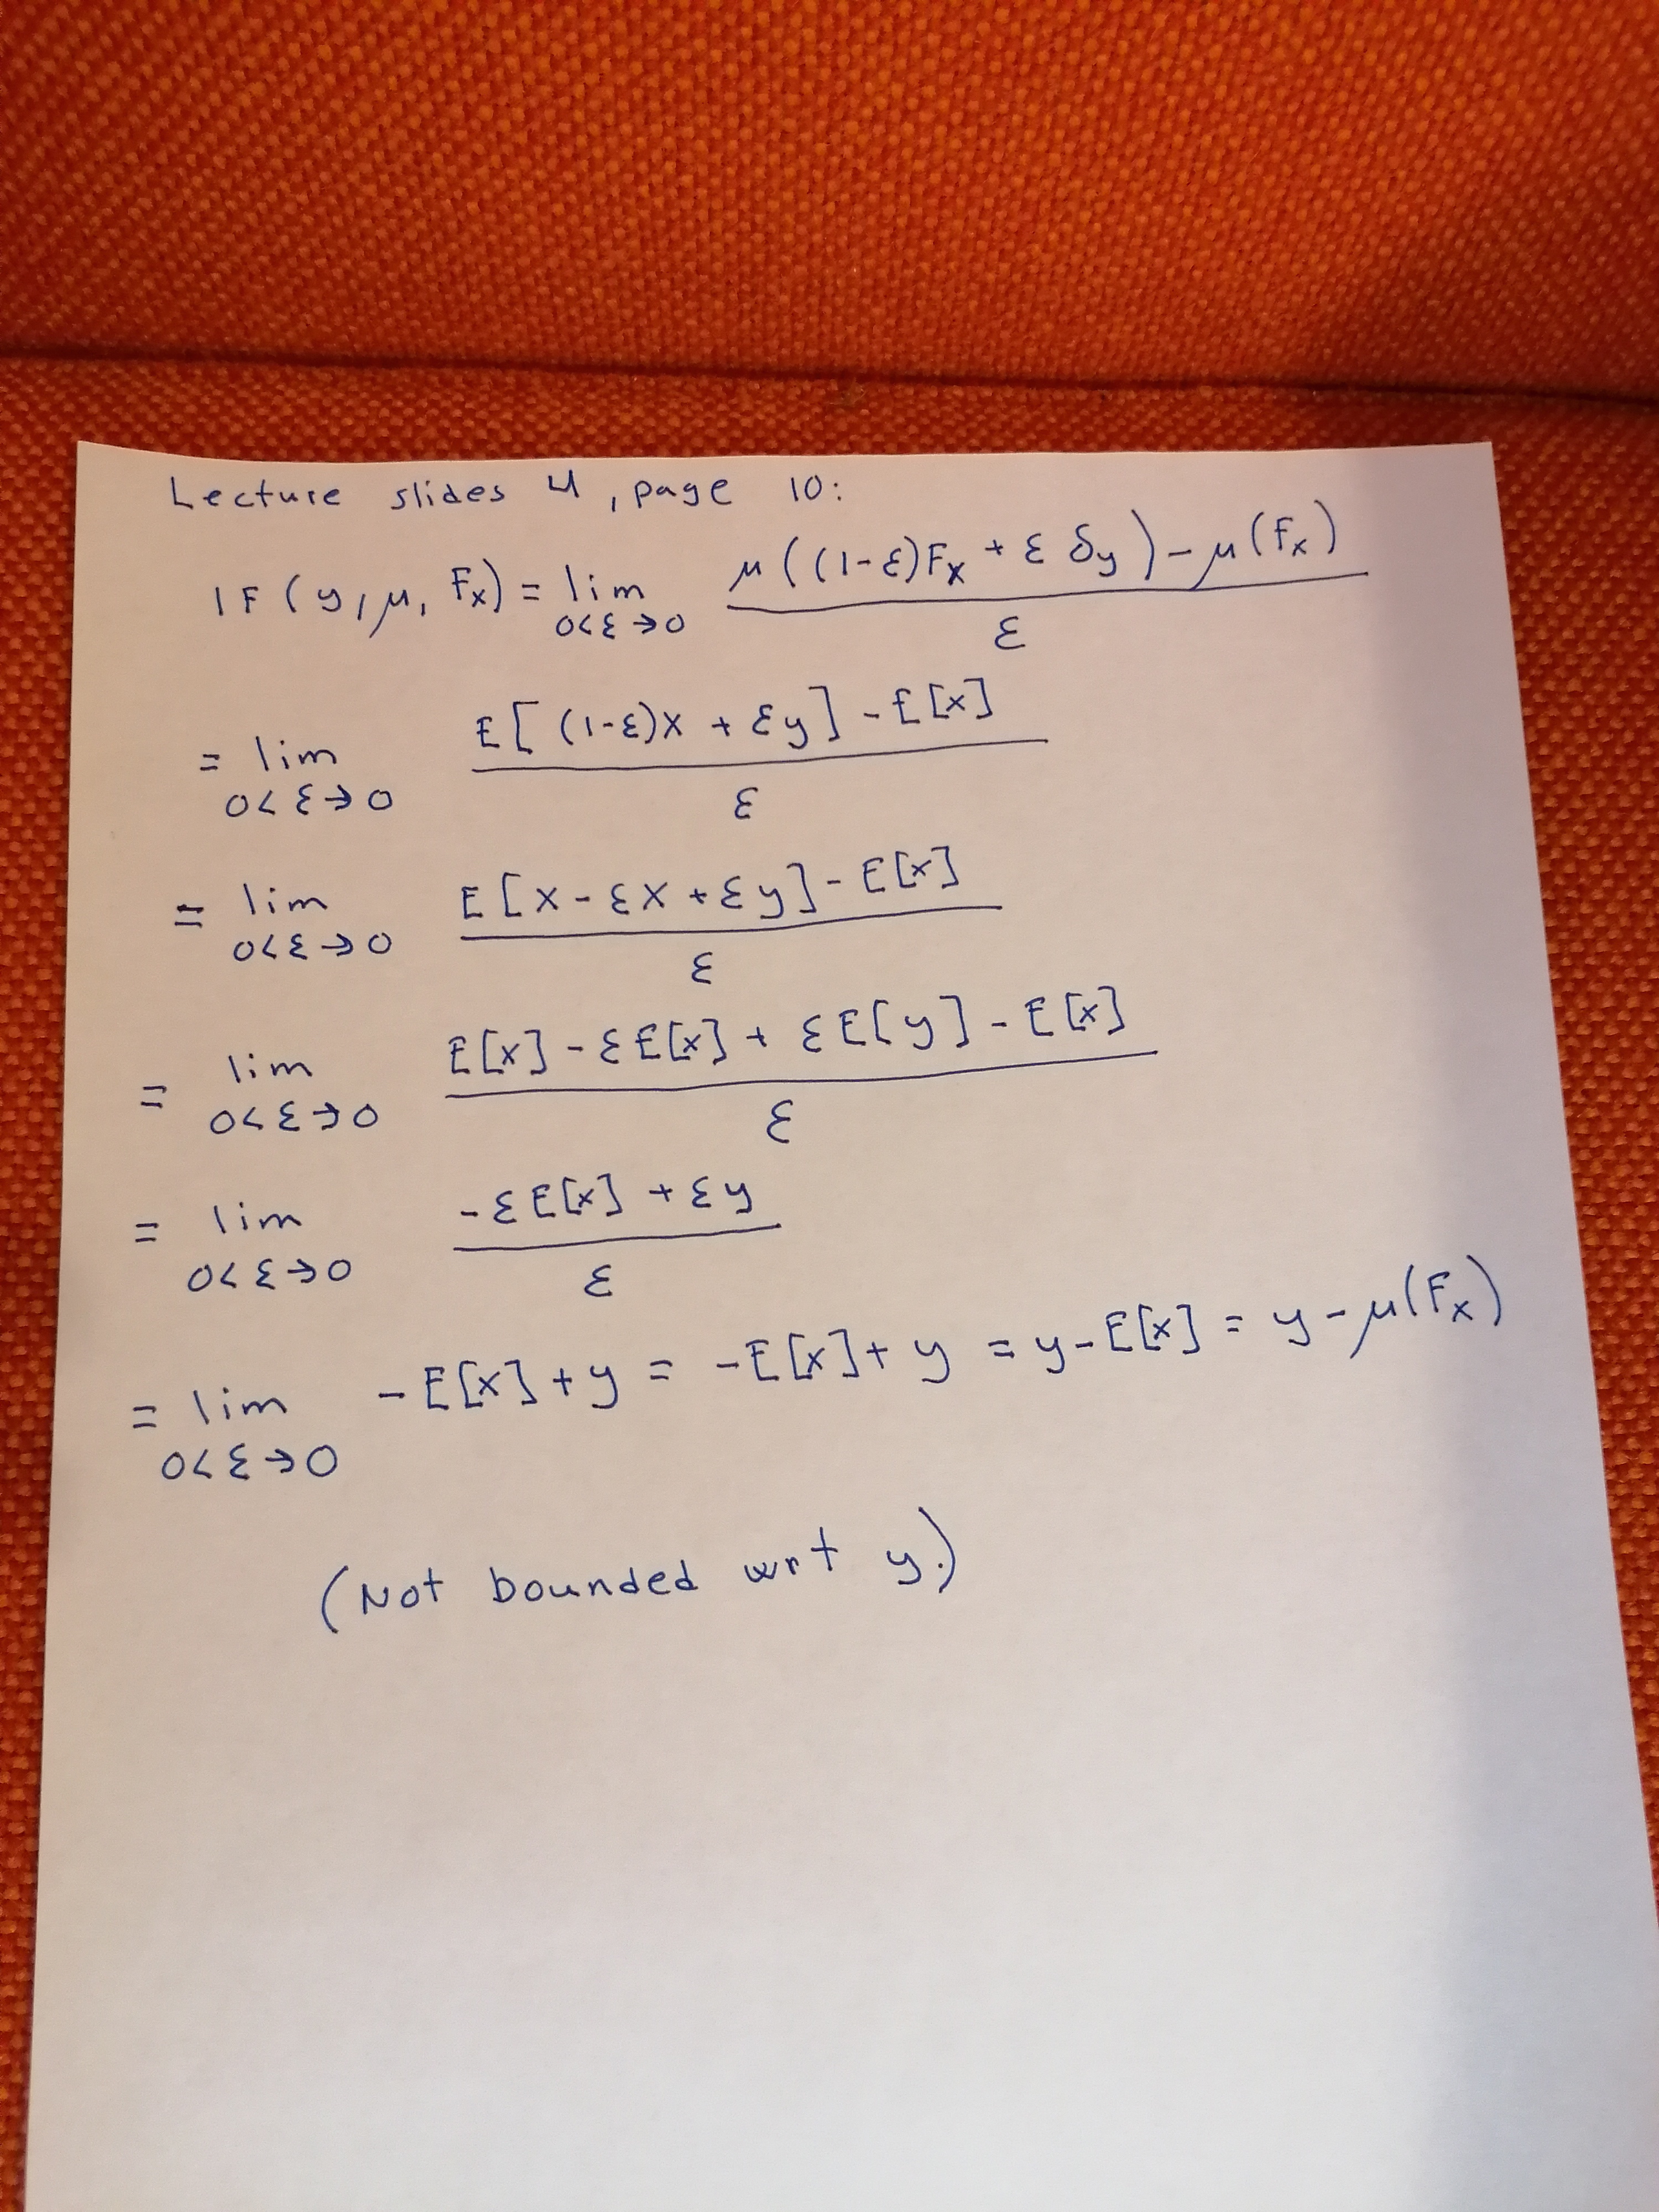 Lecture slides 4, page 10:
IF(y, μ, Fx) = lim 0<ε→0 (μ((1-ε)Fx + ε δy) - μ(Fx)) / ε
= lim 0<ε→0 (E[(1-ε)x + εy] - E[x]) / ε
= lim 0<ε→0 (E[x - εx + εy] - E[x]) / ε
= lim 0<ε→0 (E[x] - εE[x] + εE[y] - E[x]) / ε
= lim 0<ε→0 (-εE[x] + εy) / ε
= lim 0<ε→0 -E[x] + y = -E[x] + y = y - E[x] = y - μ(Fx)
(Not bounded wrt y.)